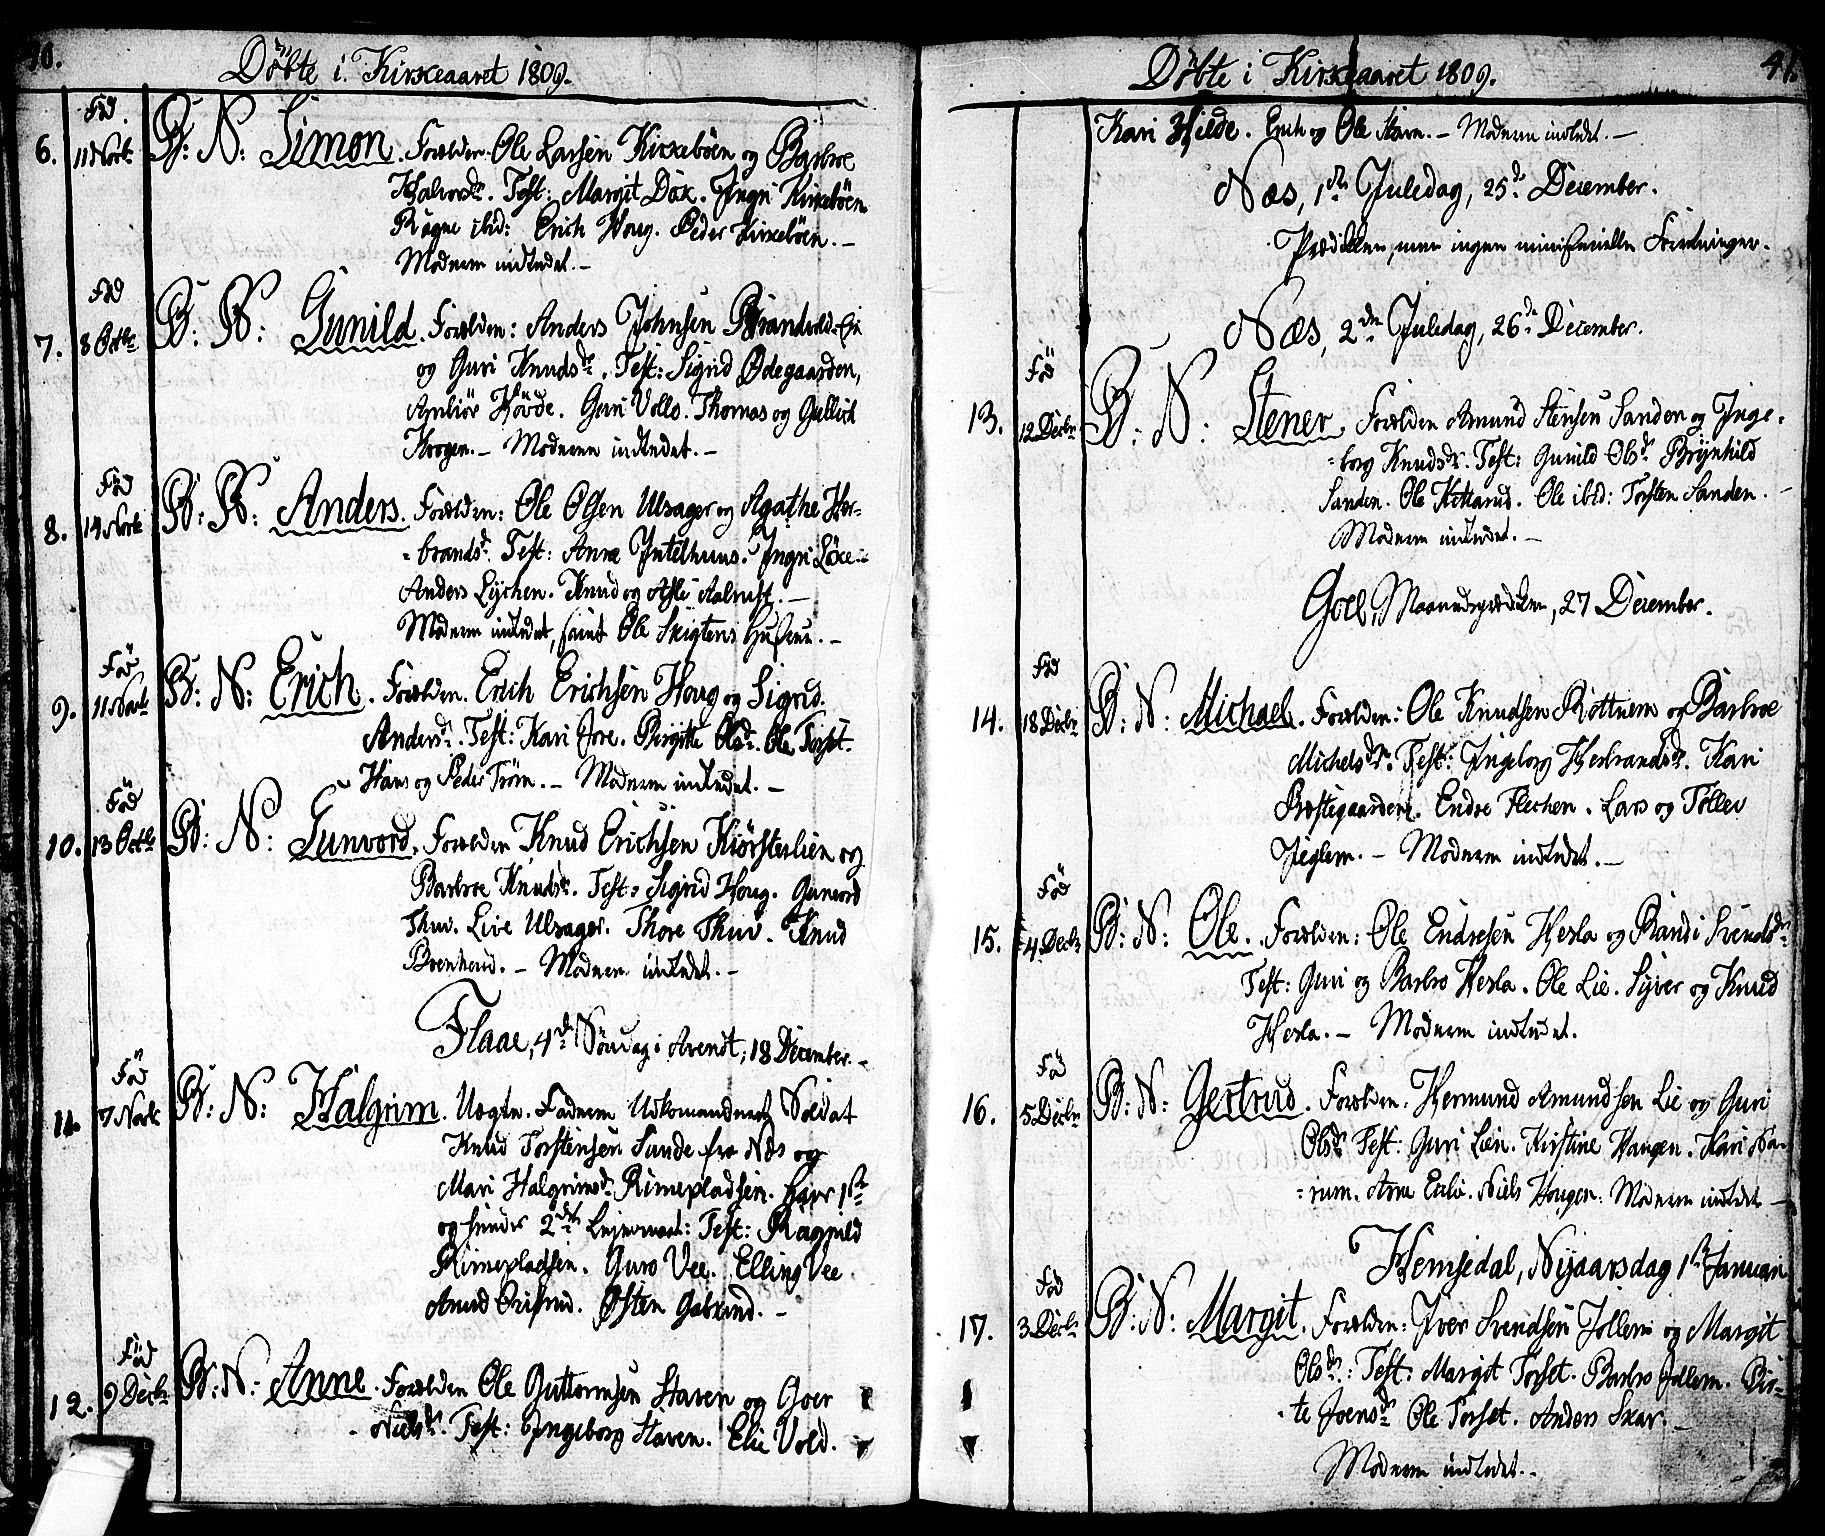 40.
Döbte i Kirkeaaret 1809.
Fød
6. 11 Novbr. B: N: Simon. Forælder: Ole Larsen Kirkebøen og Barbroe
Halvorsdr. Test: Margit Dox. Ingri Kirkebøen
Ragne ibid: Erich Houg. Peder Kirkebøen. —
Moderen indledet. —
Fød
7. 8 Octbr B: N: Gunild. Forælder: Anders Johnsen
og Guri Knudsdr. Test: Sigrid Ødegaarden,
Høvde. Guri Vollo. Thomas og Gullich
Krogen. — Moderen indledet. —
Fød
8. 14 Novbr B: N: Anders. Forælder: Ole Olsen Ulsager og Agathe Her-
-brandsdr. Test: Anne Intelhuus. Ingri Løxe
Anders Lychen. Knud og Asle —
Moderen indledet, samt Ole Skigtens Hustrue. —
Fød
9. 11 Novbr B: N: Erich. Forælder. Erich Erichsen Houg og Sigrid
Andersdr. Test: Kari Jore. Birgitte Olsdr. Ole Torset.
Hans og Peder Trøm. — Moderen indledet. —
Fød
10. 13 Octbr B: N: Gunvord. Forælder Knud Erichsen Kiörsterlien og
Barbroe Knudsdr. Test: Sigrid Houg. Gunvord
Thuv. Live Ulsager. Thore Thuv. Knud
— Moderen indledet. —
Flaae, 4de Søndag i Advent, 18 December. —
Fød
11. 7 Novbr B: N: Halgrim. Uægte. Faderen Udkomanderet Soldat
Knud Torstensen Sunde fra Næs og
Mari Halgrimsdr. Rimepladsen. Hans 1ste
og hendes 2det Leiermaal: Test: Ragnild
Rimepladsen. Guro Vee. Elling Vee
Østen Gulsrud. —
Fød
12. 9 Decbr B: N: Anne. Forælder Ole Guttormsen Staven og Goer
Nielsdr. Test: Ingeborg Staven. Elie Vold.
Döbte i Kirkeaaret 1809.
41.
Kari Hilde. Erich og Ole Staven. — Moderen indledet. —
Næs, 1ste Juledag, 25de December.
Prædiken, men ingen ministerielle Forretninger.
Næs, 2den Juledag, 26de December.
Fød
13. 12 Decbr B: N: Stener. Forælder Amund Stensen Sanden og Inge-
-borg Knudsdr. Test: Gunild Olsdr. Brynhild
Sanden. Ole Ole ibid: Torsten Sanden. —
Moderen indledet. —
Goel, Maanedsprædiken, 27 December.
Fød
14. 18 Decbr B: N: Michael. Forælder: Ole Knudsen Rottnem og Barbroe
Michelsdr. Test: Ingeborg Herbrandsdr. Kari
Præstegaarden. Endre Flechen. Lars og Tollev
Jeglem. — Moderen indledet. —
Fød
15. 4 Decbr B: N: Ole. Forælder: Ole Endresen Hesla og Randi Svendsdr.
Test: Guri og Barbro Hesla. Ole Lie. Syver og Knud
Hesla. — Moderen indledet.
Fød
16. 5 Decbr B: N: Gertrud. Forælder. Hermund Amundsen Lie og Guri
Olsdr Test: Guri Lien. Kirstine Haugen. Kari
Arne Niels Hougen. Moderen indledet —
Hemsedal, Nyaarsdag 1ste Januari
Fød
17. 3 Decbr B: N: Margit. Forælder: Iver Svendsen Jollem og Margit
Olsdr: Test: Margit Torset. Barbro Jollem. Bir-
-te Joensdr Ole Torset. Anders Skar. —
Moderen indledet.